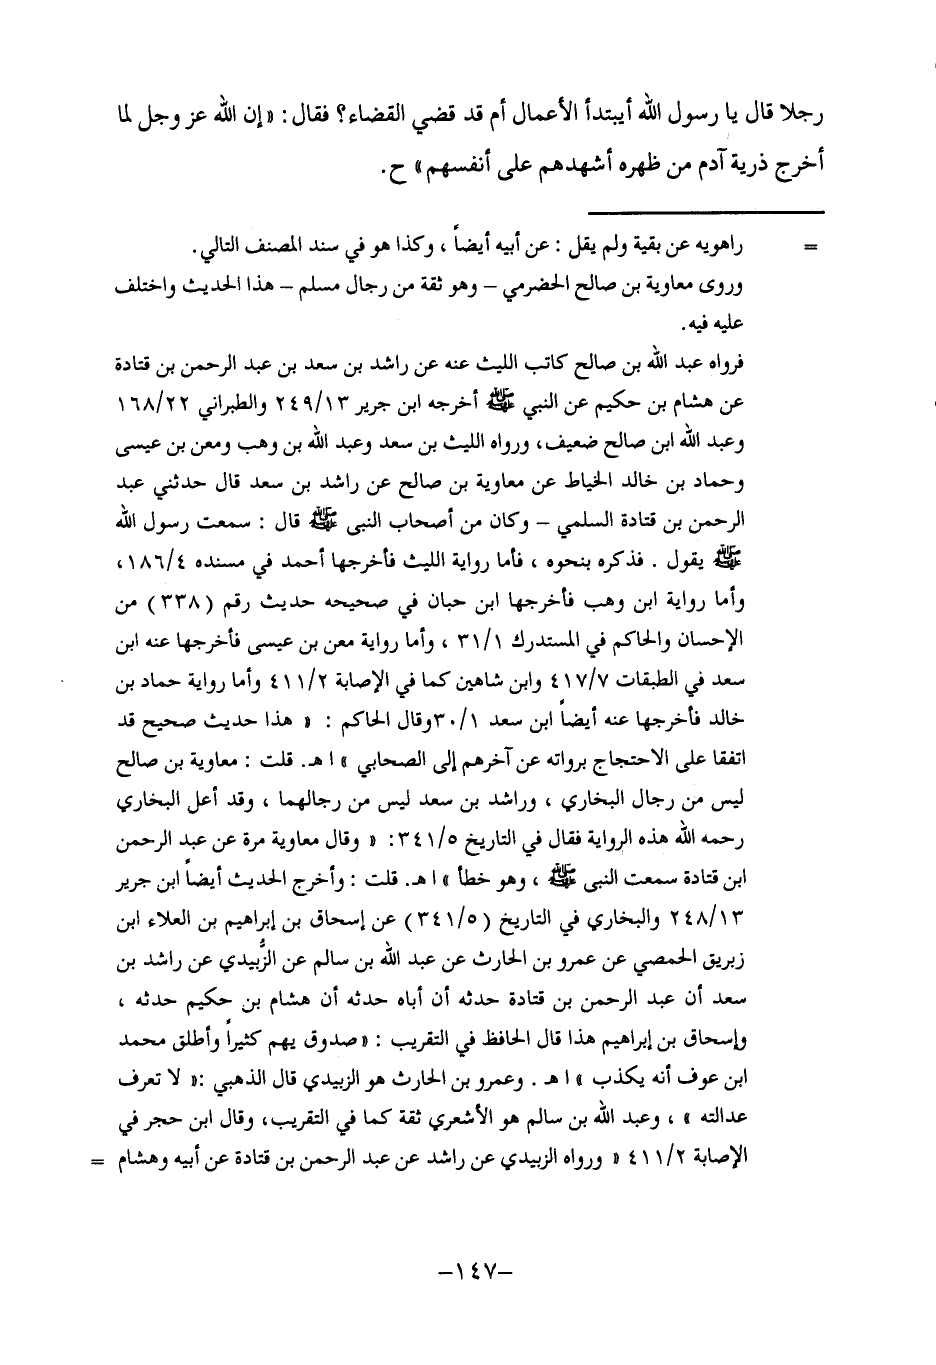 رجلا قال يا رسول الله أيبتدأ الأعمال أم قد قضي القضاء؟ فقال : « إن الله عز وجل لما
أخرج ذرية آدم من ظهره أشهدهم على أنفسهم » ح.
= راهويه عن بقية ولم يقل : عن أبيه أيضاً ، وكذا هو في سند المصنف التالي .
وروى معاوية بن صالح الحضرمي – وهو ثقة من رجال مسلم – هذا الحديث واختلف
عليه فيه .
فرواه عبد الله بن صالح كاتب الليث عنه عن راشد بن سعد بن عبد الرحمن بن قتادة
عن هشام بن حكيم عن النبي ﷺ أخرجه ابن جرير ٢٤٩/١٣ والطبراني ١٦٨/٢٢
وعبد الله ابن صالح ضعيف، ورواه الليث بن سعد وعبد الله بن وهب ومعن بن عيسى
وحماد بن خالد الخياط عن معاوية بن صالح عن راشد بن سعد قال حدثني عبد
الرحمن بن قتادة السلمي – وكان من أصحاب النبي ﷺ قال : سمعت رسول الله
ﷺ يقول . فذكره بنحوه ، فأما رواية الليث فأخرجها أحمد في مسنده ١٨٦/٤ ،
وأما رواية ابن وهب فأخرجها ابن حبان في صحيحه حديث رقم (٣٣٨) من
الإحسان والحاكم في المستدرك ٣١/١ ، وأما رواية معن بن عيسى فأخرجها عنه ابن
سعد في الطبقات ٤١٧/٧ وابن شاهين كما في الإصابة ٤١١/٢ وأما رواية حماد بن
خالد فأخرجها عنه أيضاً ابن سعد ٣٠/١وقال الحاكم : « هذا حديث صحيح قد
اتفقا على الاحتجاج برواته عن آخرهم إلى الصحابي » ا هـ. قلت : معاوية بن صالح
ليس من رجال البخاري ، وراشد بن سعد ليس من رجالهما ، وقد أعل البخاري
رحمه الله هذه الرواية فقال في التاريخ ٣٤١/٥: « وقال معاوية مرة عن عبد الرحمن
ابن قتادة سمعت النبي ﷺ ، وهو خطأ » ا هـ. قلت : وأخرج الحديث أيضاً ابن جرير
٢٤٨/١٣ والبخاري في التاريخ (٣٤١/٥) عن إسحاق بن إبراهيم بن العلاء ابن
زبريق الحمصي عن عمرو بن الحارث عن عبد الله بن سالم عن الزُّبيدي عن راشد بن
سعد أن عبد الرحمن بن قتادة حدثه أن أباه حدثه أن هشام بن حكيم حدثه ،
وإسحاق بن إبراهيم هذا قال الحافظ في التقريب : « صدوق يهم كثيراً وأطلق محمد
ابن عوف أنه يكذب » ا هـ . وعمرو بن الحارث هو الزبيدي قال الذهبي :« لا تعرف
عدالته » ، وعبد الله بن سالم هو الأشعري ثقة كما في التقريب، وقال ابن حجر في
الإصابة ٤١١/٢ « ورواه الزبيدي عن راشد عن عبد الرحمن بن قتادة عن أبيه وهشام =
–١٤٧–